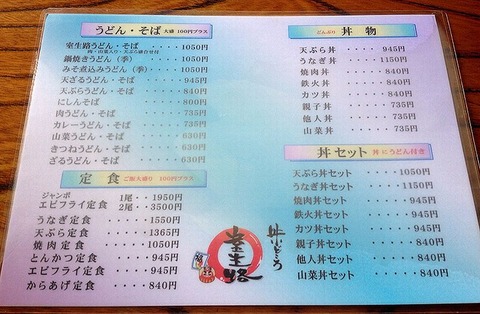 うどん・そば 大盛 100円プラス
室生路うどん・そば ・・・・1050円
肉・山菜入り・天ぷら盛合せ付
鍋焼きうどん(季) ・・・・1050円
みそ煮込みうどん(季)・・・・1050円
天ざるうどん・そば ・・・・・945円
天ぷらうどん・そば ・・・・・840円
にしんそば ・・・・・800円
肉うどん・そば ・・・・・735円
カレーうどん・そば ・・・・・735円
山菜うどん・そば ・・・・・630円
きつねうどん・そば ・・・・・630円
ざるうどん・そば ・・・・・630円
定食 ご飯大盛り 100円プラス
ジャンボ
エビフライ定食 1尾・・・1950円
2尾・・・3500円
うなぎ定食 ・・・・1550円
天ぷら定食 ・・・・1365円
焼肉定食 ・・・・1050円
とんかつ定食 ・・・・945円
エビフライ定食 ・・・・945円
からあげ定食 ・・・・840円
どんぶり 丼物
天ぷら丼 ・・・・945円
うなぎ丼 ・・・・1150円
焼肉丼 ・・・・840円
鉄火丼 ・・・・840円
カツ丼 ・・・・840円
親子丼 ・・・・735円
他人丼 ・・・・735円
山菜丼 ・・・・735円
丼セット 丼にうどん付き
天ぷら丼セット ・・・・1050円
うなぎ丼セット ・・・・1150円
焼肉丼セット ・・・・945円
鉄火丼セット ・・・・945円
カツ丼セット ・・・・945円
親子丼セット ・・・・840円
他人丼セット ・・・・840円
山菜丼セット ・・・・840円
味どころ
室生路